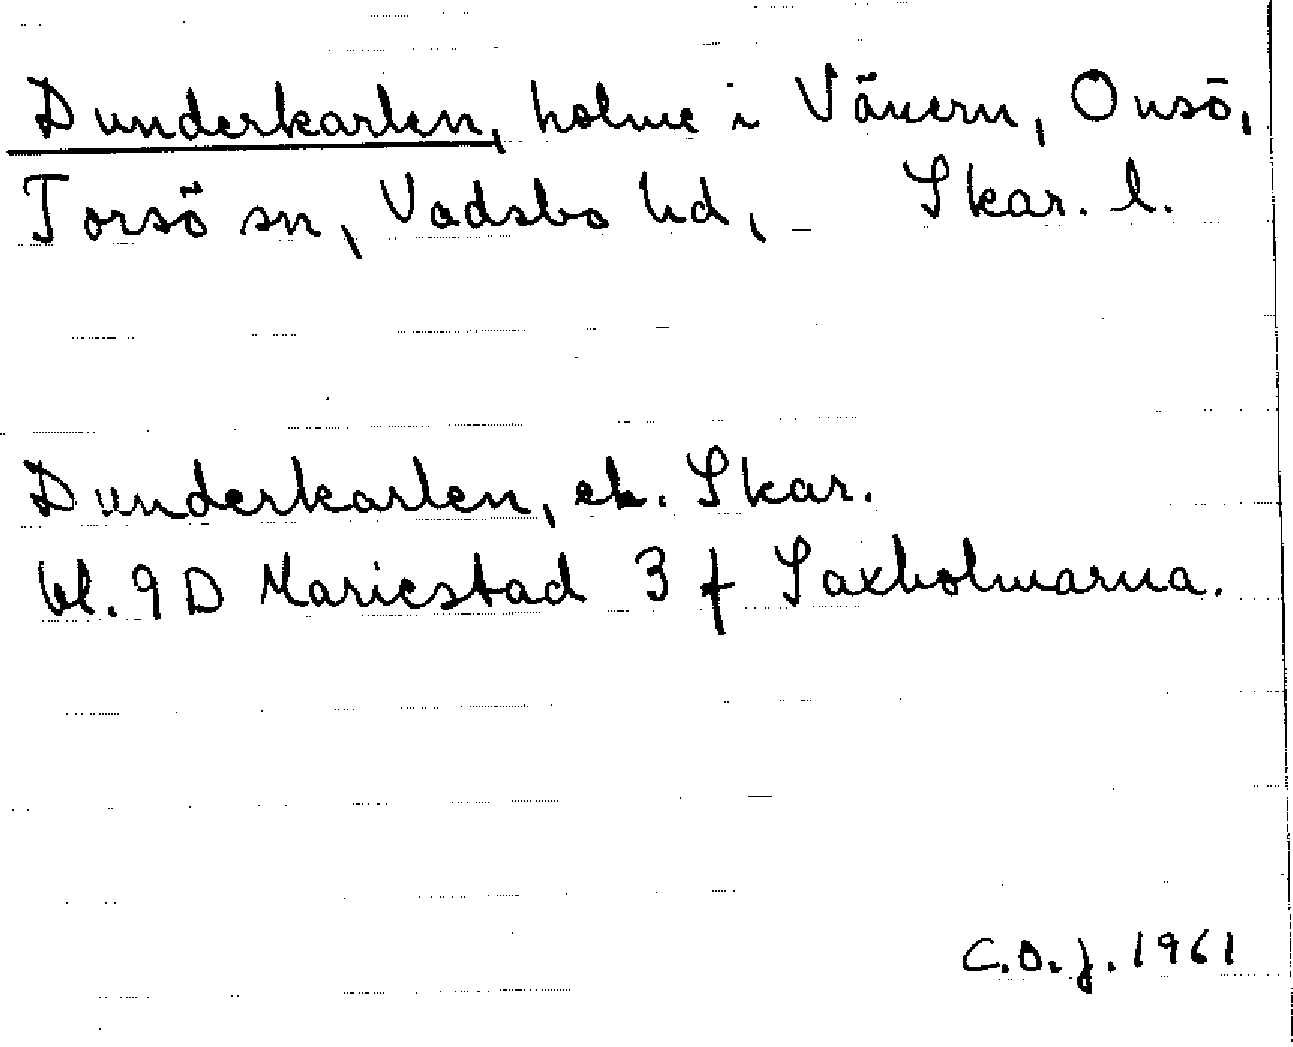 Dunderkarlen, holme i Vänern, Onsö,
Torsö sn, Vadsbo hd, Skar. l.
Dunderkarlen, ek. Skar.
bl. 9 D Mariestad 3 f Saxholmarna.
C.O.J. 1961